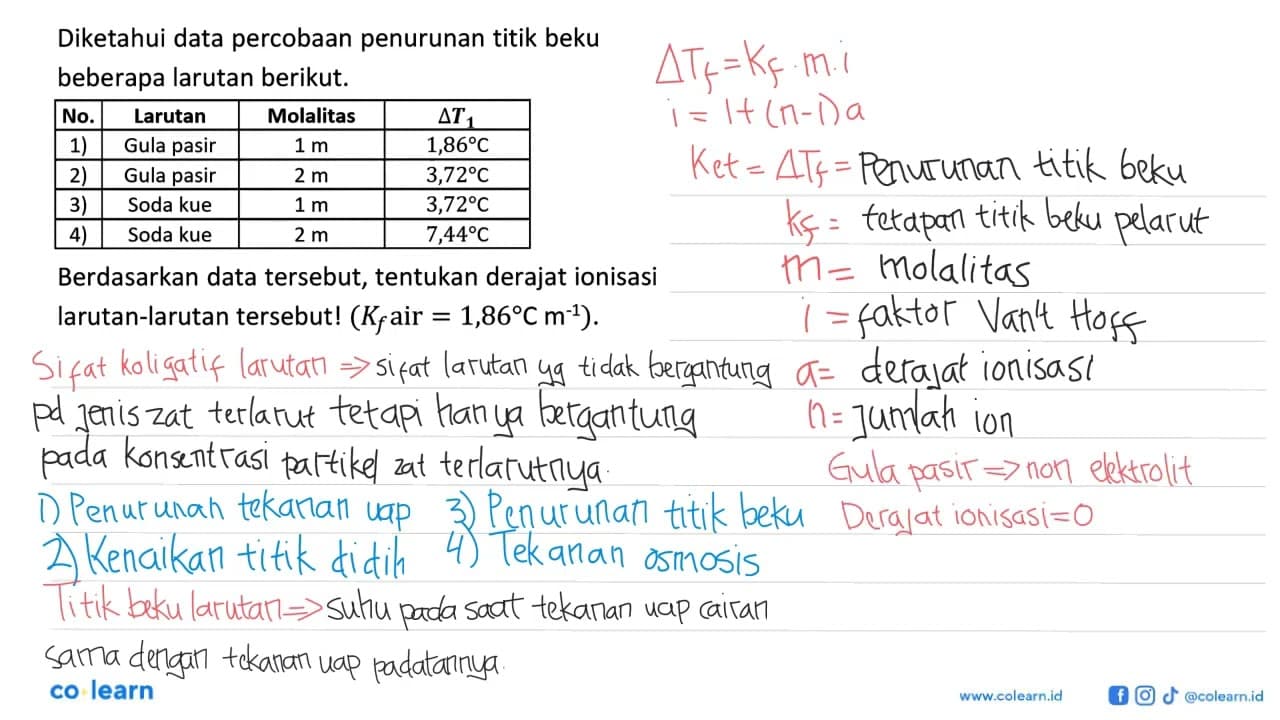 Diketahui data percobaan penurunan titik beku
beberapa larutan berikut.
No. Larutan Molalitas ΔT₁
1) Gula pasir 1 m 1,86°C
2) Gula pasir 2 m 3,72°C
3) Soda kue 1 m 3,72°C
4) Soda kue 2 m 7,44°C
Berdasarkan data tersebut, tentukan derajat ionisasi
larutan-larutan tersebut! (K_f air = 1,86°C m⁻¹).
ΔTf = Kf . m . i
i = 1 + (n-1)a
Ket = ΔTf = Penurunan titik beku
kf = tetapan titik beku pelarut
m = Molalitas
i = faktor Van't Hoff
a = derajat ionisasi
n = jumlah ion
Sifat koligatif larutan => sifat larutan yg tidak bergantung
pd jenis zat terlarut tetapi hanya bergantung
pada konsentrasi partikel zat terlarutnya.
1) Penurunan tekanan uap 3) Penurunan titik beku
2) Kenaikan titik didih 4) Tekanan osmosis
Gula pasir => non elektrolit
Derajat ionisasi = 0
Titik beku larutan => suhu pada saat tekanan uap cairan
sama dengan tekanan uap padatannya.
co learn
www.colearn.id
@colearn.id